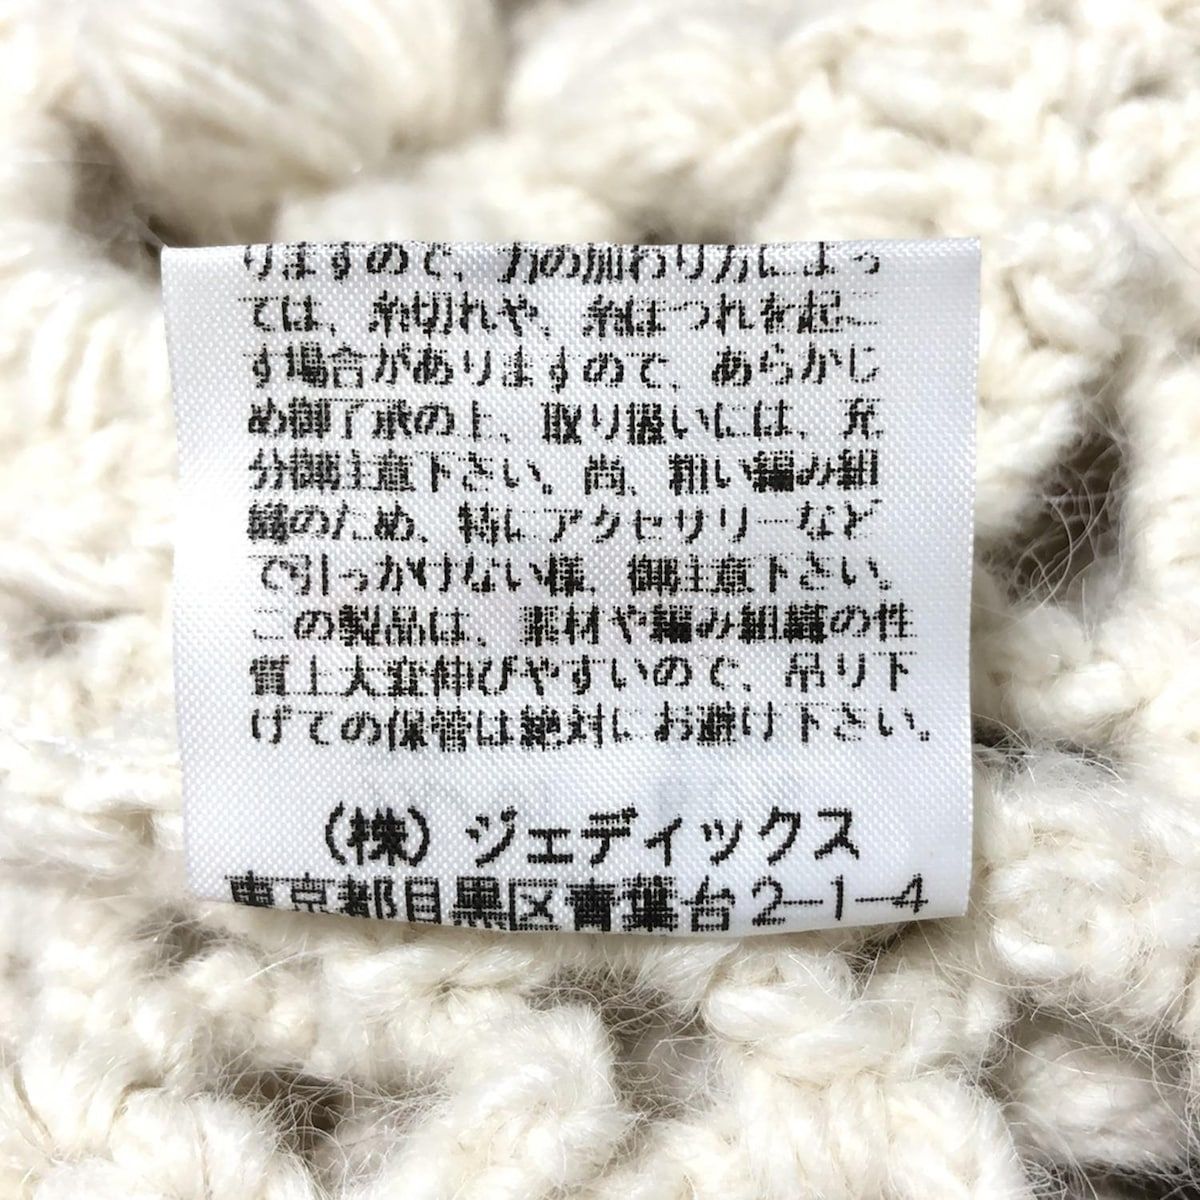 りますので、力の加わり方によっ
ては、糸切れや、糸ほつれを起こ
す場合がありますので、あらかじ
め御了承の上、取り扱いには、充
分御注意下さい。尚、粗い編み組
織のため、特にアクセサリーなど
で引っかけない様、御注意下さい。
この製品は、素材や編み組織の性
質上大変伸びやすいので、吊り下
げての保管は絶対にお避け下さい。
(株)ジェディックス
東京都目黒区青葉台2-1-4